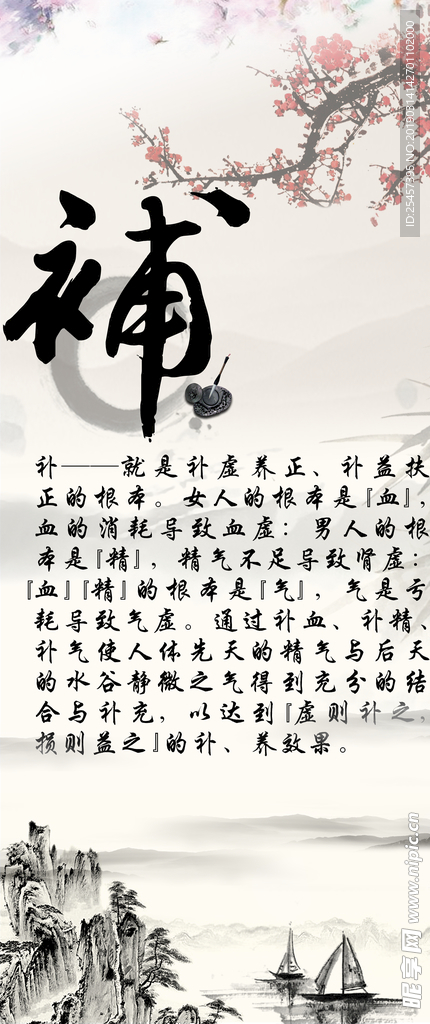 補
补——就是补虚养正、补益扶
正的根本。女人的根本是『血』,
血的消耗导致血虚：男人的根
本是『精』，精气不足导致肾虚：
『血』『精』的根本是『气』，气是亏
耗导致气虚。通过补血、补精、
补气使人体先天的精气与后天
的水谷静微之气得到充分的结
合与补充，以达到『虚则补之,
损则益之』的补、养效果。
ID:25457395 NO:20190614142701102000
昵享网 www.nipic.cn